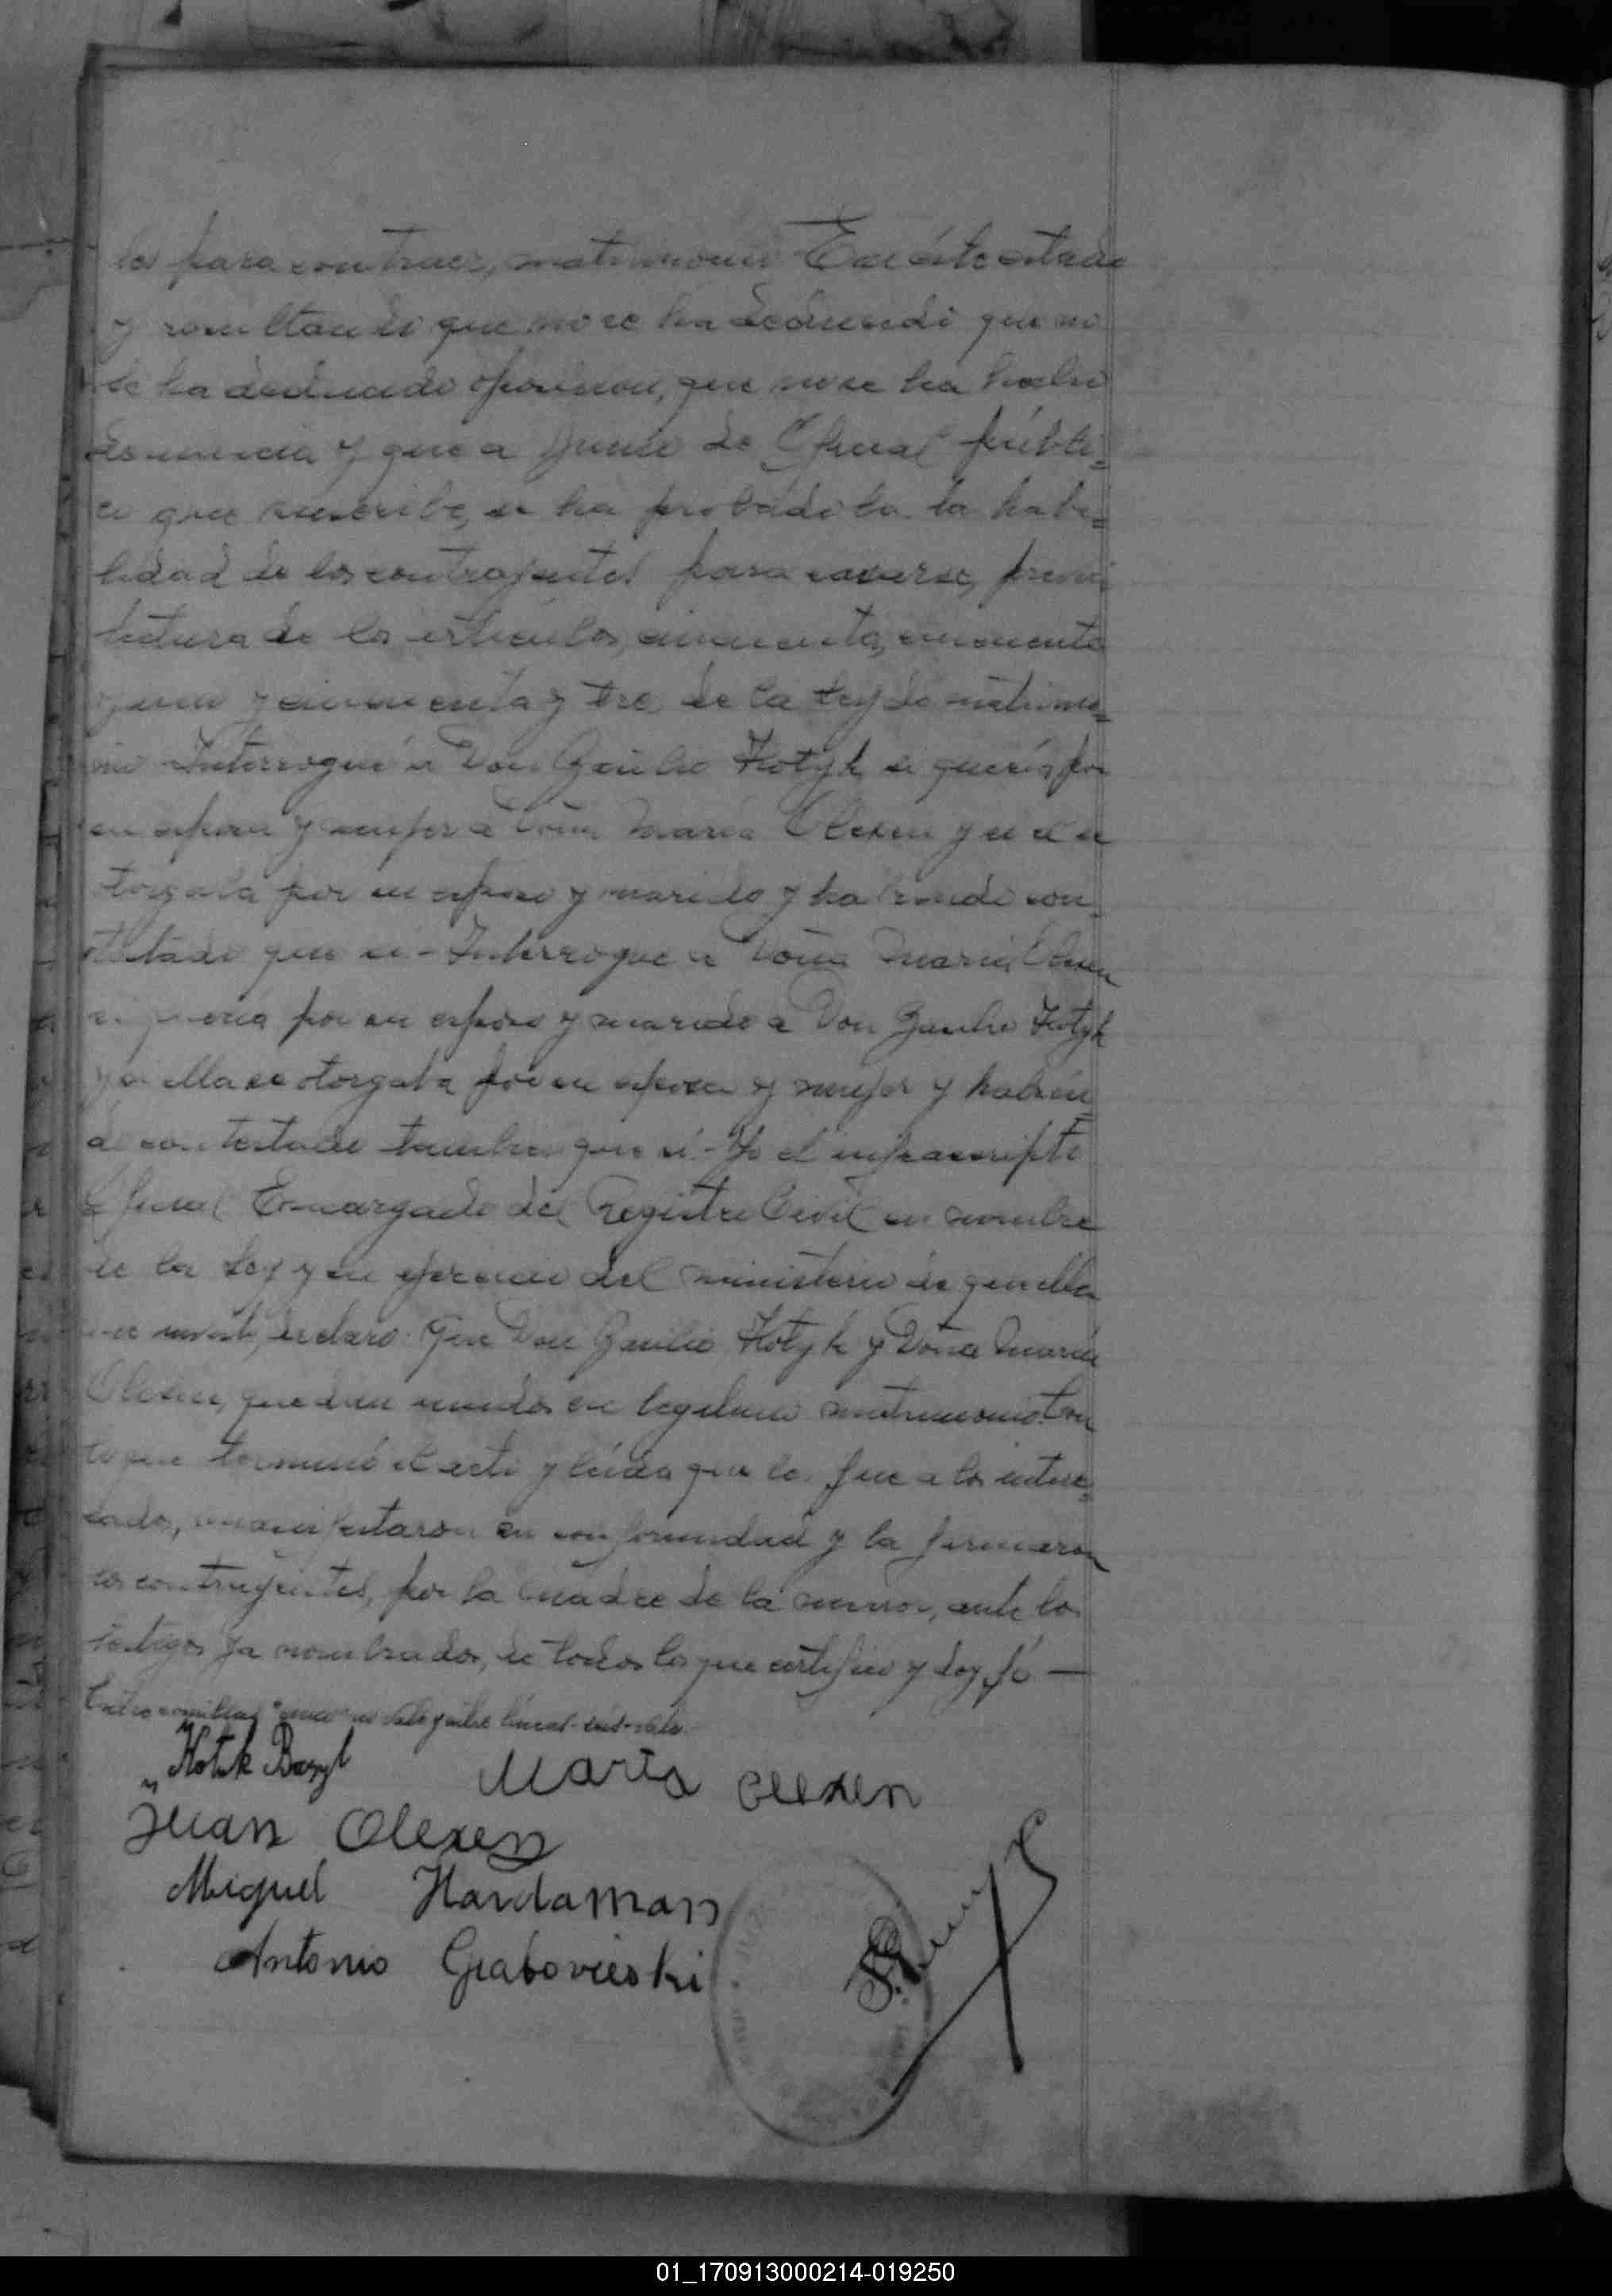 los para contraer, matrimonio En éste estado
y resultando que no se ha deducido que no
se ha deducido oposición, que no se ha hecho
denuncia y que a juicio de Oficial públi=
co que suscribe, se ha probado la la habi=
lidad de los contrayentes para casarse, previa
lectura de los artículos, cincuenta, cincuenta
y uno y cincuenta y tres de la ley de matrimo=
nio Interrogué a Don Basilio Kotyk si quería por
su esposa y mujer a Doña María Olexen y si él se
otorgaba por su esposo y marido y habiendo con=
testado que si - Interrogue a Doña María Olexen
si quería por su esposo y marido a Don Basilio Kotyk
y si ella se otorgaba por su esposa y mujer y habién=
do contestado tambien que si - Yo el infrascripto
Oficial Encargado del Registro Civil en nombre
de la Ley y en ejercicio del ministerio de que ella
me inviste, declaro: Que Don Basilio Kotyk y Doña María
Olexen, quedan unidos en legitimo matrimonio. Con
lo que terminó el acto y leída que les fue a los intere=
sados, manifestaron su conformidad y la firmaron
los contrayentes, por la madre de la menor, ante los
testigos ya nombrados, de todos los que certifico y doy fé —
Entre comillas no vale y entre líneas vale
Kotek Bazyl Maria Olexen
Juan Olexen
Miguel Handaman
Antonio Grabovieski
01_170913000214-019250